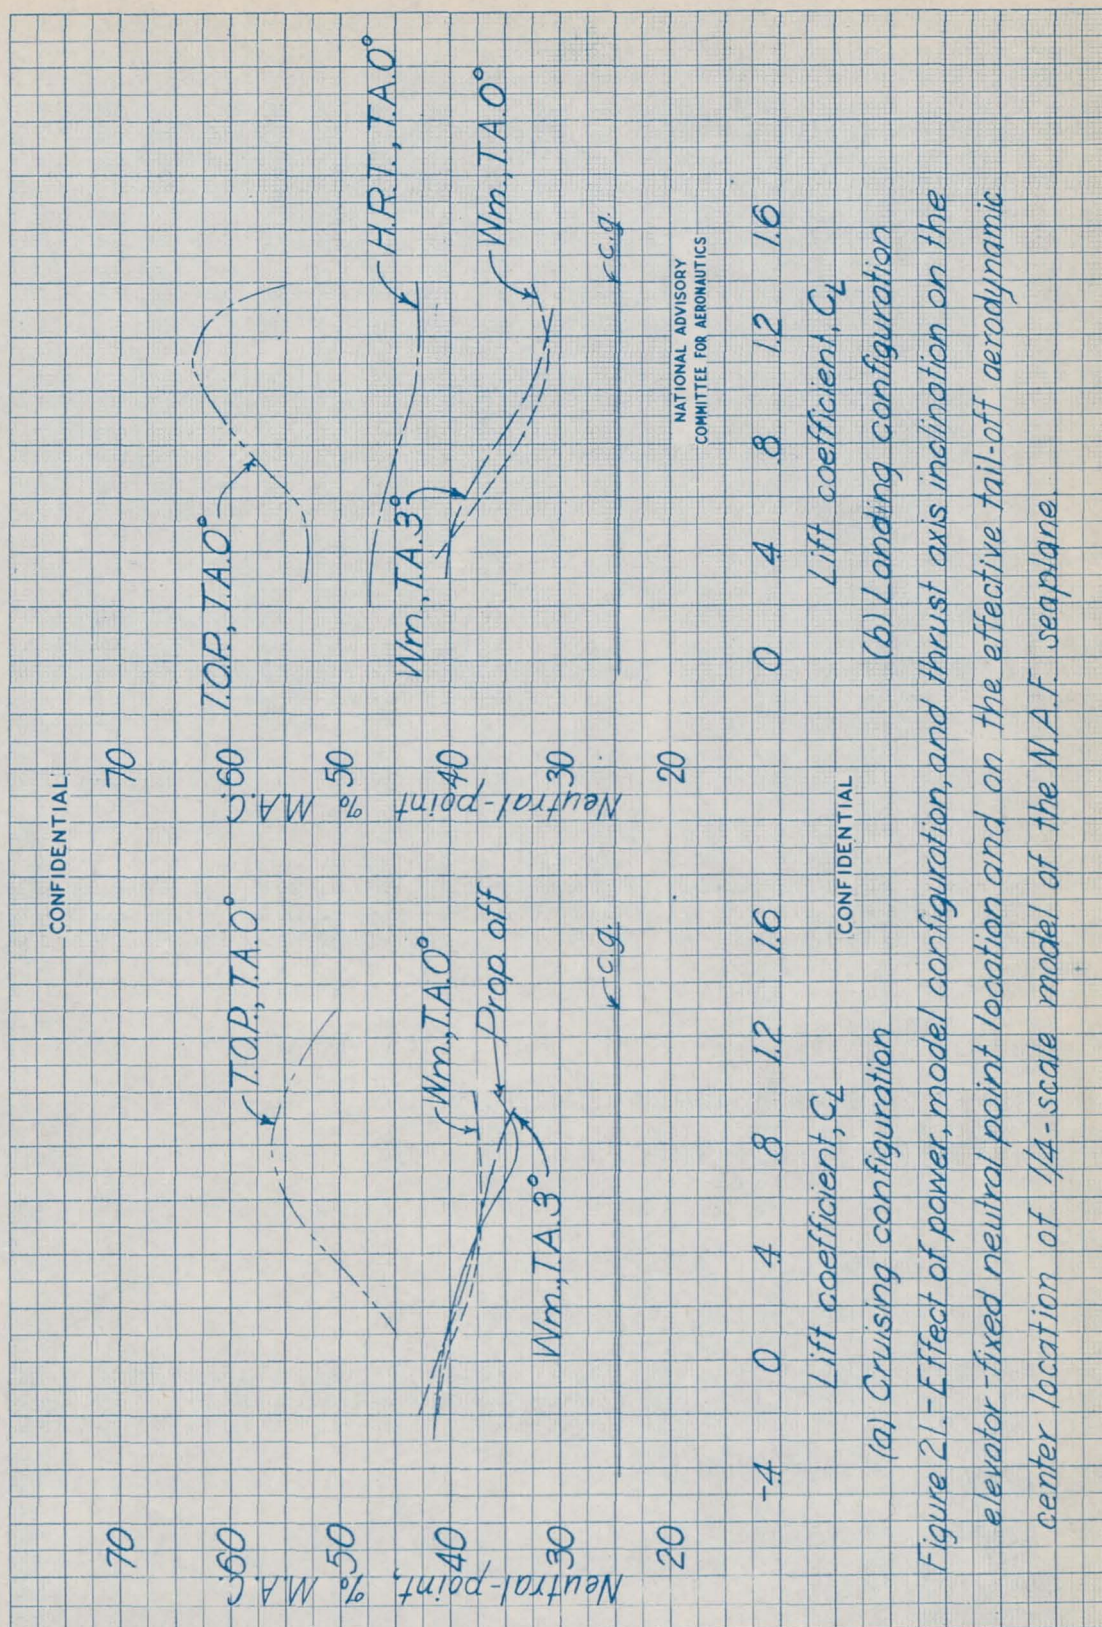 CONFIDENTIAL
70
60
50
40
30
20
Neutral-point, % M.A.C.
T.O.P., T.A.0°
Wm., T.A.0°
Prop. off
Wm., T.A.3°
c.g.
-.4 0 .4 .8 1.2 1.6
Lift coefficient, CL
(a) Cruising configuration
70
60
50
40
30
20
Neutral-point % M.A.C.
T.O.P., T.A.0°
H.R.T., T.A.0°
Wm., T.A.3°
Wm., T.A.0°
c.g.
NATIONAL ADVISORY
COMMITTEE FOR AERONAUTICS
0 .4 .8 1.2 1.6
Lift coefficient, CL
(b) Landing configuration
CONFIDENTIAL
Figure 21.-Effect of power, model configuration, and thrust axis inclination on the
elevator-fixed neutral point location and on the effective tail-off aerodynamic
center location of 1/4-scale model of the N.A.F. seaplane.